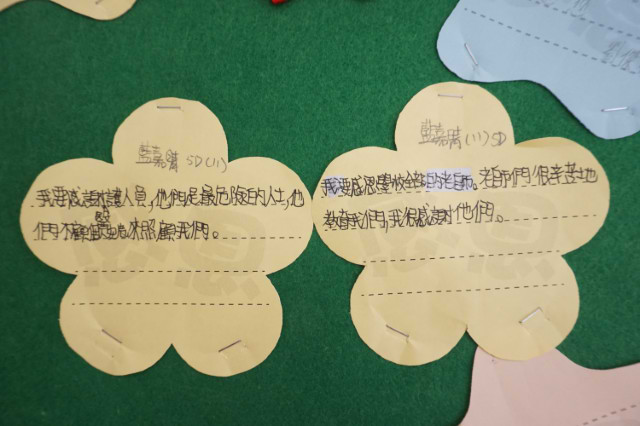 藍嘉晴 5D(11)
我要感謝救護人員,他們是最危險的人生,他
們不顧來照顧我們。
藍嘉晴(11)5D
我要感恩學校全部的老師。老師們很辛苦地
教育我們,我很感謝他們。